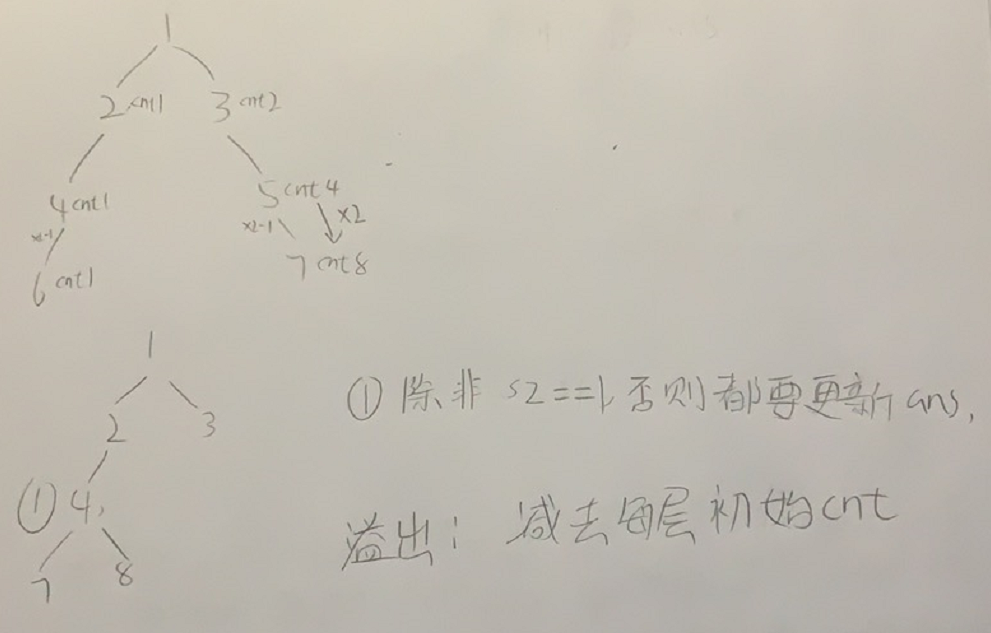 1
2 cnt1 3 cnt2
4 cnt1 5 cnt4
x2-1 x2-1 x2
6 cnt1 7 cnt8
1
2 3
① 4,
7 8
① 除非 sz==1, 否则都要更新 ans,
溢出: 减去每层初始cnt